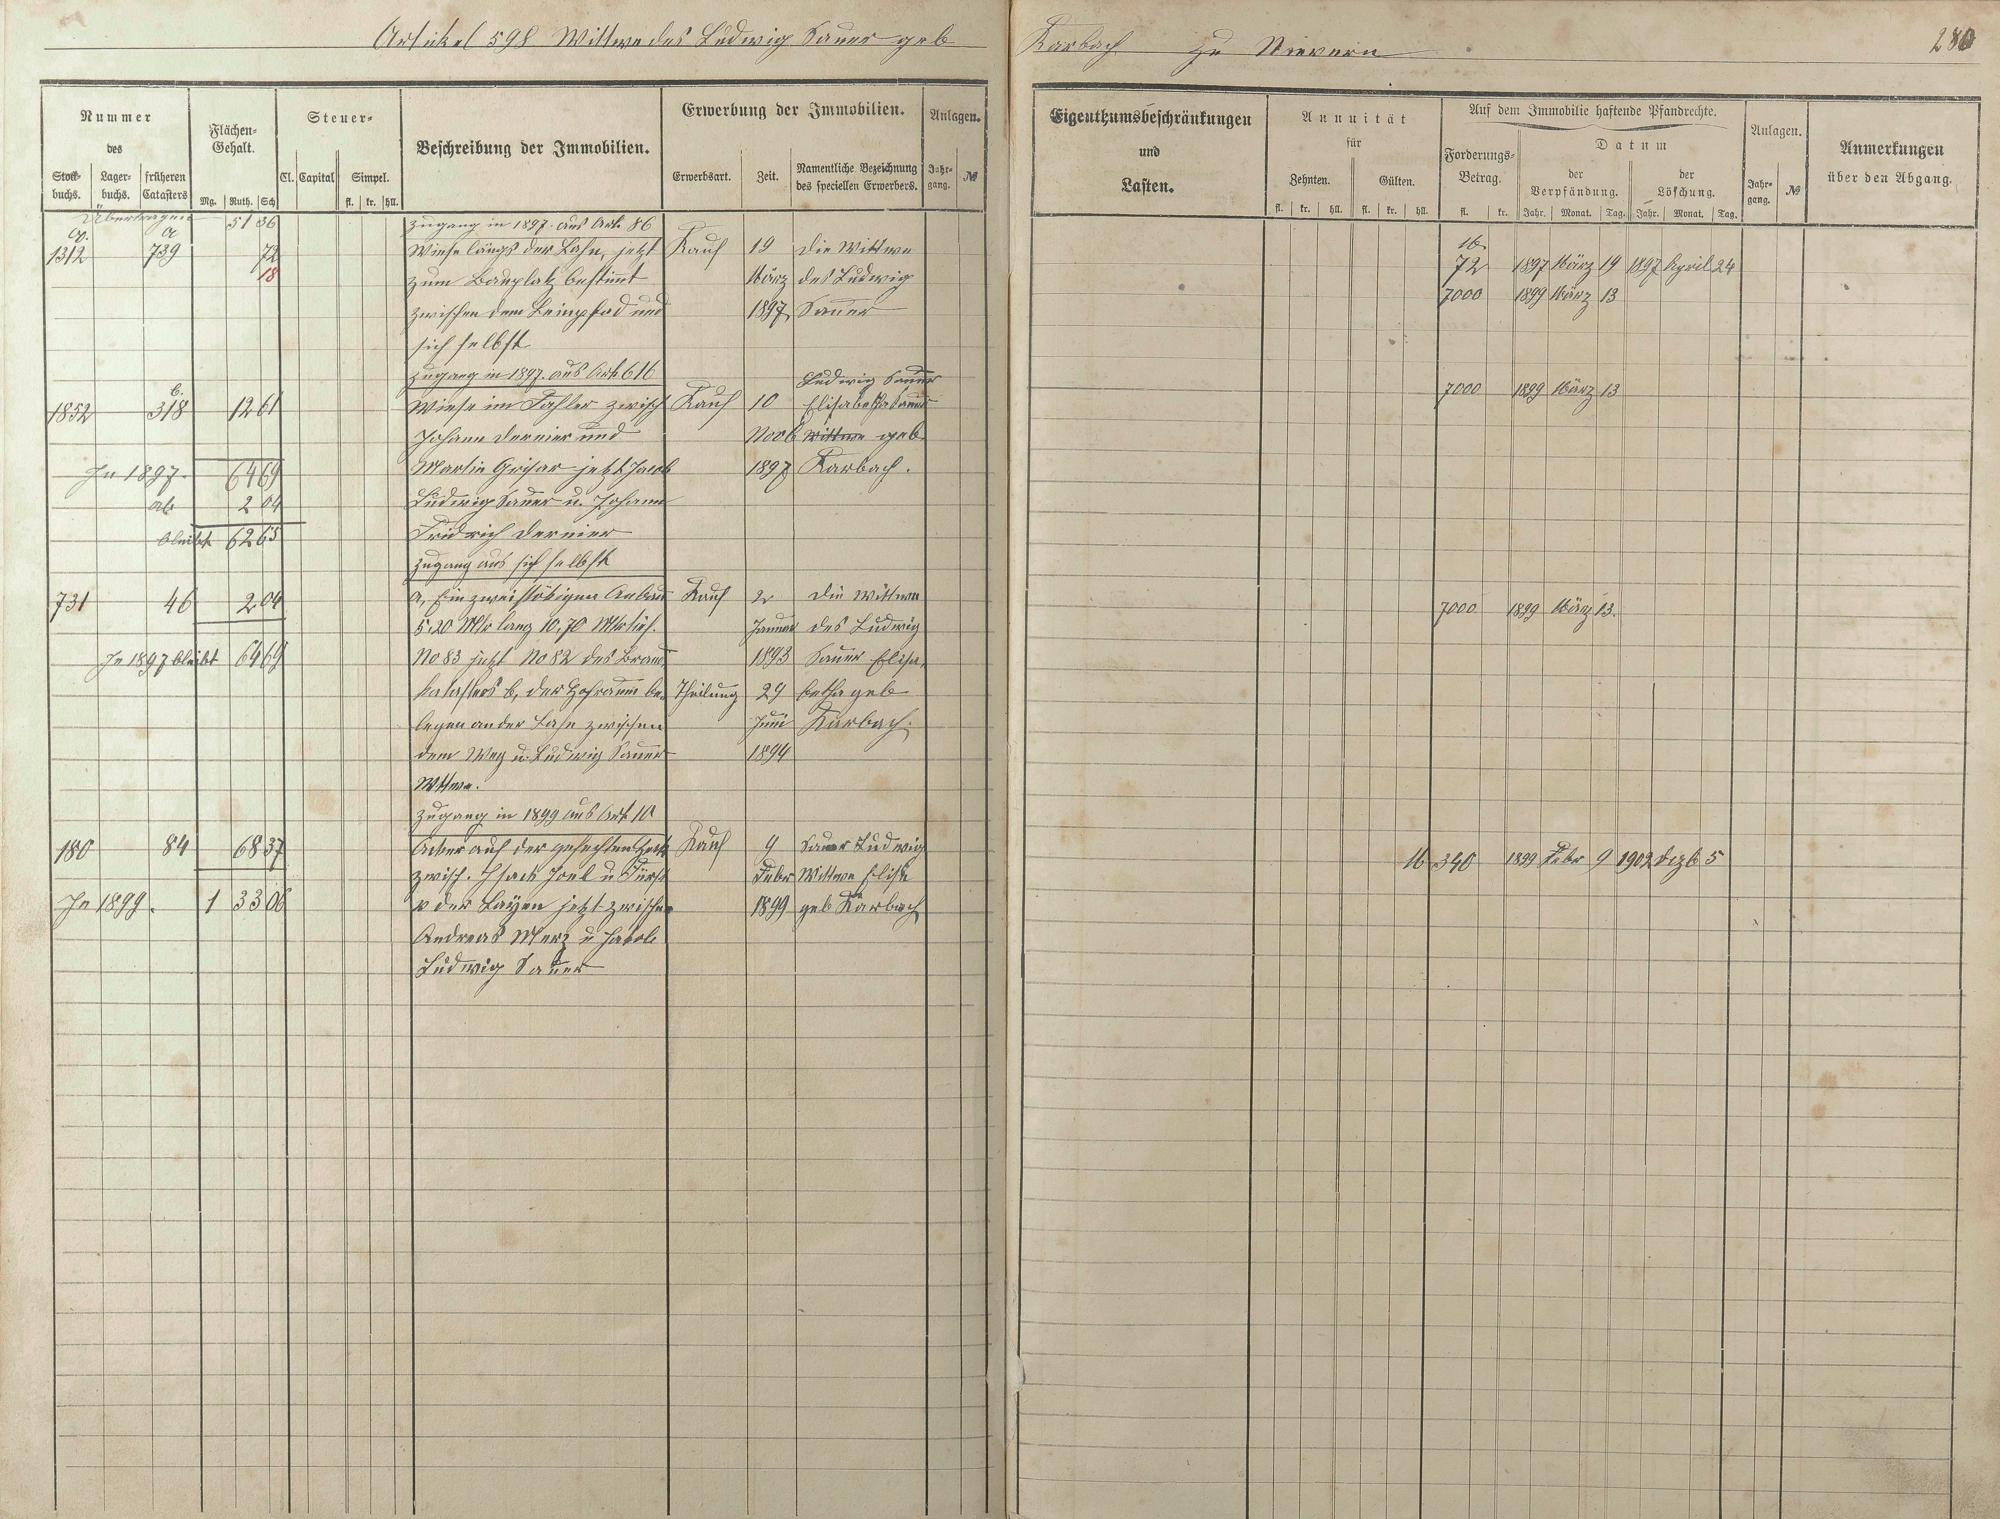 Artikel 598 Wittwe des Ludwig Sauer geb Karbach zu Nievern
280
Nummer
des
Stockbuchs. Lagerbuchs. früheren Catasters
Flächen-Gehalt.
Mg. Ruth. Sch
Steuer-
Cl. Capital Simpel.
fl. kr. hll.
Beschreibung der Immobilien.
Erwerbung der Immobilien.
Erwerbsart. Zeit. Namentliche Bezeichnung des speciellen Erwerbers.
Anlagen.
Jahrgang. №
Eigenthumsbeschränkungen
und
Lasten.
Annuität
für
Zehnten. Gülten.
fl. kr. hll. fl. kr. hll.
Auf dem Immobilie haftende Pfandrechte.
Forderungs-Betrag.
fl. kr.
Datum
der Verpfändung. der Löschung.
Jahr. Monat. Tag. Jahr. Monat. Tag.
Anlagen.
Jahrgang. №
Anmerkungen
über den Abgang.
Übertragen 51 36 Zugang in 1897. aus Art. 86
a
1312 739 72 Wiese längs der Lahn, jetzt Kauf 19 die Wittwe
18 zum Bauplatz bestimmt März des Ludwig
zwischen dem Leinpfad und 1897 Sauer
sich selbst
16
72 1897 März 19 1897 April 24
7000 1899 März 13
Zugang in 1897. aus Art. 616
b. Ludwig Sauer
1852 318 12 61 Wiese im Fahler zwisch Kauf 10 Elisabetha Sauer 7000 1899 März 13
Johann Dernier und Novb Wittwe geb
In 1897. 64 69 Martin Grisar jetzt Jacob 1897 Karbach.
ab 2 04 Ludwig Sauer u. Johann
bleibt 62 65 Fridrich Dernier
Zugang aus sich selbst
731 46 2 04 a, Ein zweistökigen Anbau Kauf 2 die Wittwe 7000 1899 März 13.
5,20 Mtr lang 10,70 Mtr tief. Januar des Ludwig
In 1897 bleibt 64 69 No 83 jetzt No 82 des Brand 1893 Sauer Elisa,
katasters b, der Hofraum be- Theilung 29 betha geb
legen an der Lahn zwischen Juni Karbach.
dem Weg u. Ludwig Sauer 1894
Wttwe.
Zugang in 1899 aus Art 10
180 84 68 37 Acker auf der Kauf 9 Sauer Ludwig 16 340 1899 Febr 9 1902 Dezb 5
zwisch. Isaak Joel u Fürst Febr Wittwe Elise
In 1899. 1 33 06 v der Layen jetzt zwischen 1899 geb Karbach
Andreas Merz u Jacob
Ludwig Sauer